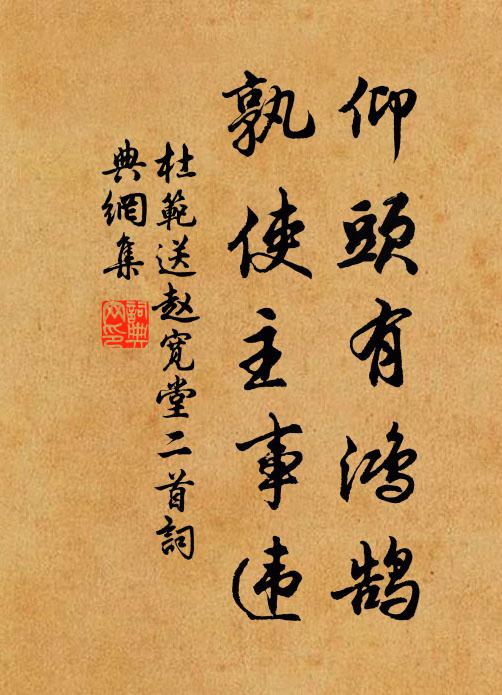 仰頭有鴻鵠
孰使主事违
杜範送赵寛堂二首詞
典網集
詞典网印